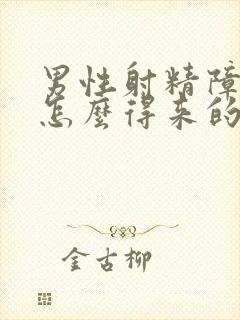 男性射精障
怎麼得来的
金古柳